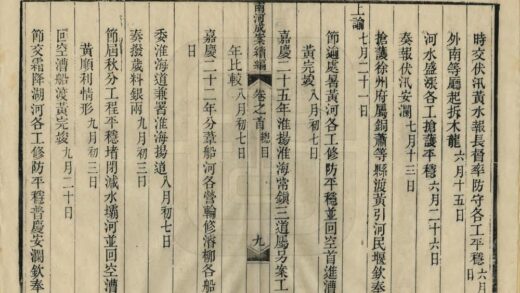 時交伏汛黃水報長督率防守各工平穩六月
日
外南等廳起拆木龍六月十五日
河水盛漲各工搶護平穩六月二十六日
奏報伏汛安瀾七月十三日
搶護徐州府屬銅蕭等縣渡黃引河民堰欽奉
上諭七月二十一日
節過處暑黃河各工修防平穩並回空首進漕
黃完竣八月初七日
嘉慶二十五年淮揚淮海常鎮三道屬另案工
南河成案續編 卷之首 總目 九
年比較八月初七日
嘉慶二十二年分葦船河各營輪修濬柳各船
委淮海道兼署淮揚道八月初七日
奏撥歲料銀兩九月初三日
節屆秋分工程平穩堵閉減水壩河並回空漕
黃順利情形九月初三日
回空漕船渡黃完竣九月二十日
節交霜降湖河各工修防平穩普慶安瀾欽奉